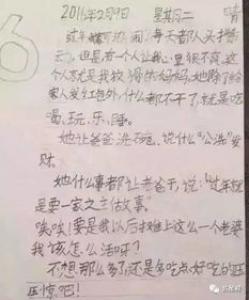 2016年2月9日 星期二 晴
过年好可热闹！每天都人头攒
动，但是有一个人让我心里很不爽，这
个人就是我妈妈，她除了给
家人发红包外，什么都不干了，就是吃
喝、玩、乐、睡。
她让爸爸洗碗，说什么“公洗”发
财。
她什么事都让老爸干，说：“过年就
是要一家之主做事。”
唉唉！要是我以后摊上这么一个老婆
我该怎么活呀？
不想那么多了还是多吃点好吃的压
压惊吧！